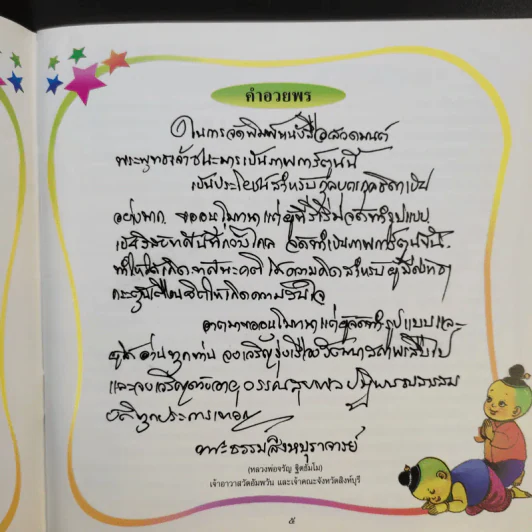 คำอวยพร
ในการจัดพิมพ์หนังสือสวดมนต์
พระพุทธเจ้าชนะมารเป็นภาพการ์ตูนนี้
เป็นประโยชน์สำหรับกุลบุตรกุลธิดาเป็น
อย่างมาก ขออนุโมทนาแด่ผู้ที่ จัดทำรูปแบบ
เป็น จัดทำเป็นภาพการ์ตูนนี้
ทำให้เกิด คติ ให้ความคิดสำหรับผู้มี
กระตุ้นเตือนจิตให้เกิดความ ใจ
อาตมาขออนุโมทนาแด่ผู้จัดทำรูปแบบและ
ผู้ อ่านทุกท่าน จงเจริญรุ่งเรืองวัฒนาสถาพรสืบไป
และจงเจริญด้วยอายุ วรรณะ สุขะ พละ ปฏิภาณ ธรรม
ทุกประการเทอญ
พระธรรมสิงหบุราจารย์
(หลวงพ่อจรัญ ฐิตธัมโม)
เจ้าอาวาสวัดอัมพวัน และเจ้าคณะจังหวัดสิงห์บุรี
๕